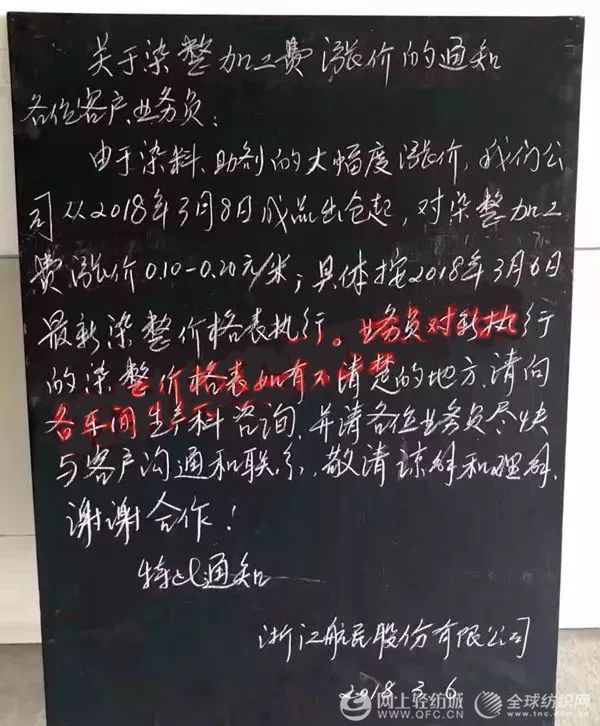 关于染整加工费涨价的通知
各位客户、业务员:
由于染料、助剂的大幅度涨价,我们公
司从2018年3月8日成品出仓起,对染整加工
费涨价0.10-0.20元/米;具体按2018年3月6日
最新染整价格表执行。业务员对新执行
的染整价格表如有不清楚的地方,请向
各车间生产科咨询,并请各位业务员尽快
与客户沟通和联系,敬请谅解和理解,
谢谢合作!
特此通知
浙江航民股份有限公司
2018 3 6
网上轻纺城
WWW.QFC.CN
全球纺织网
www.tnc.com.cn